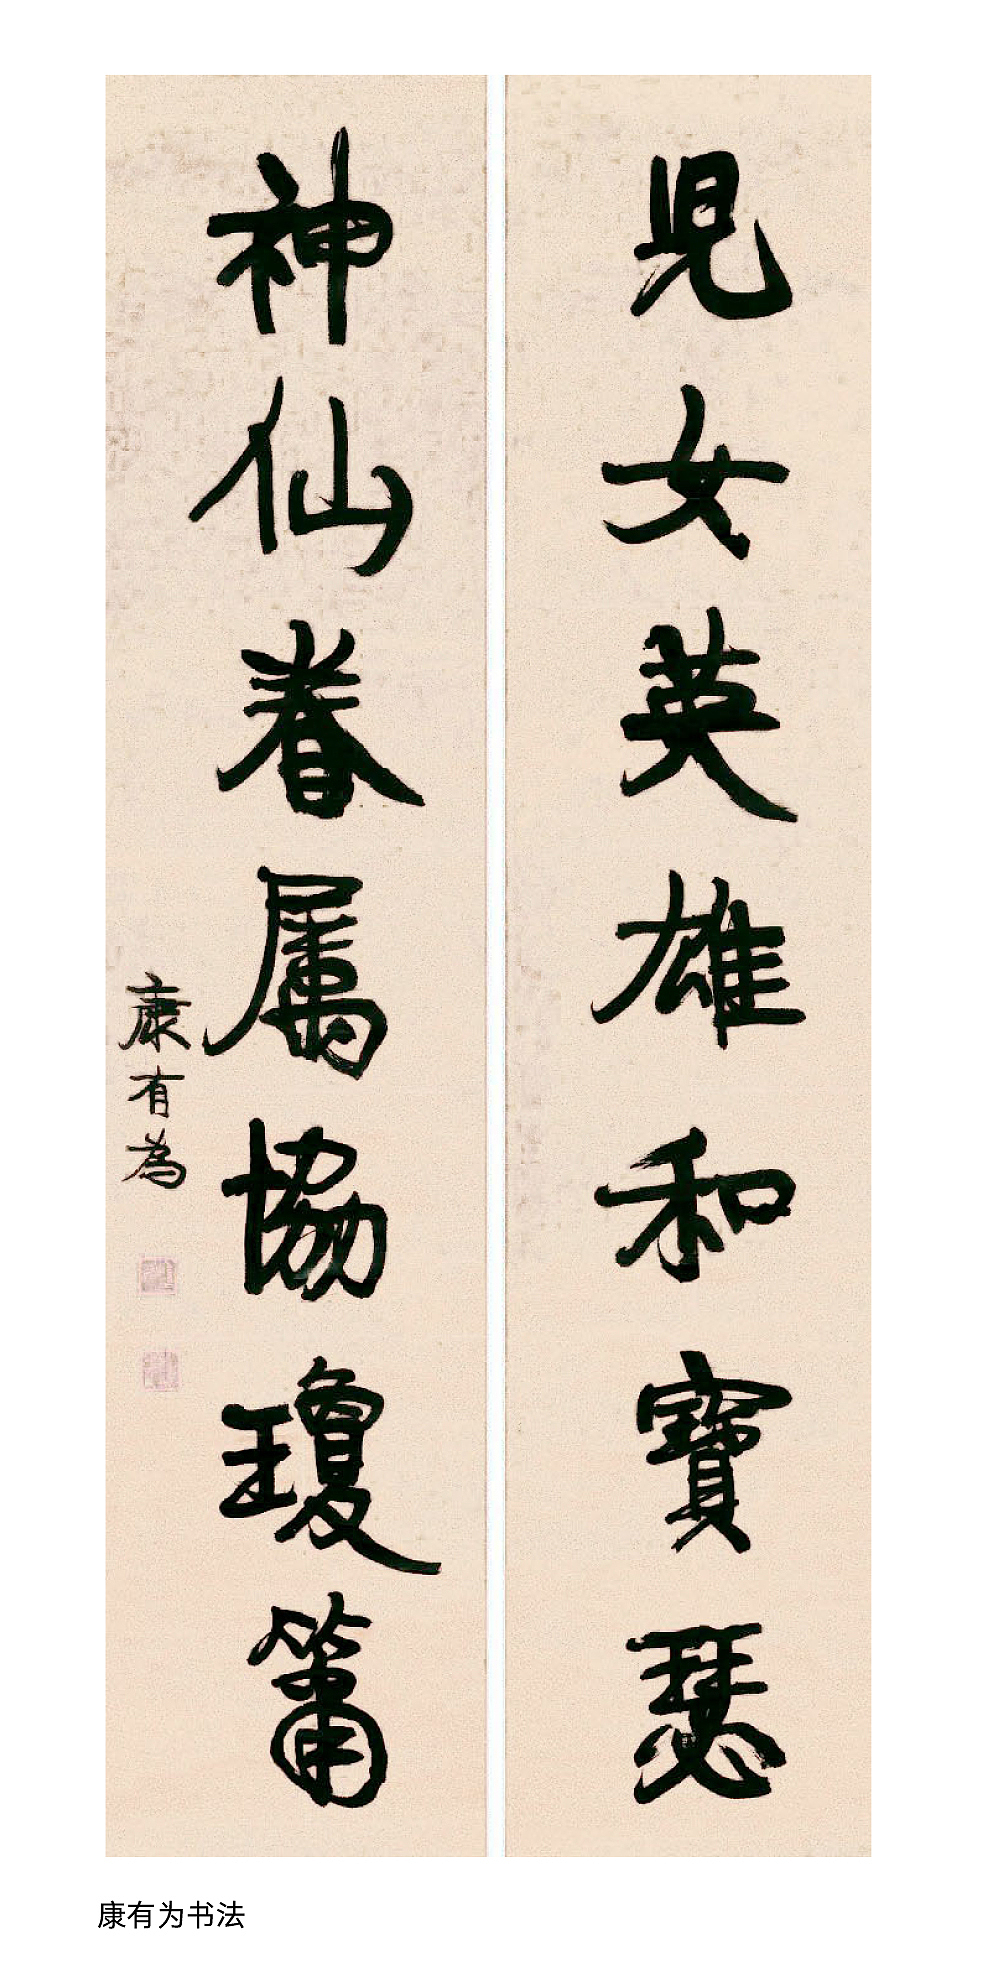 兒女英雄和寶瑟
神仙眷屬協瓊簫
康有為
康有为书法